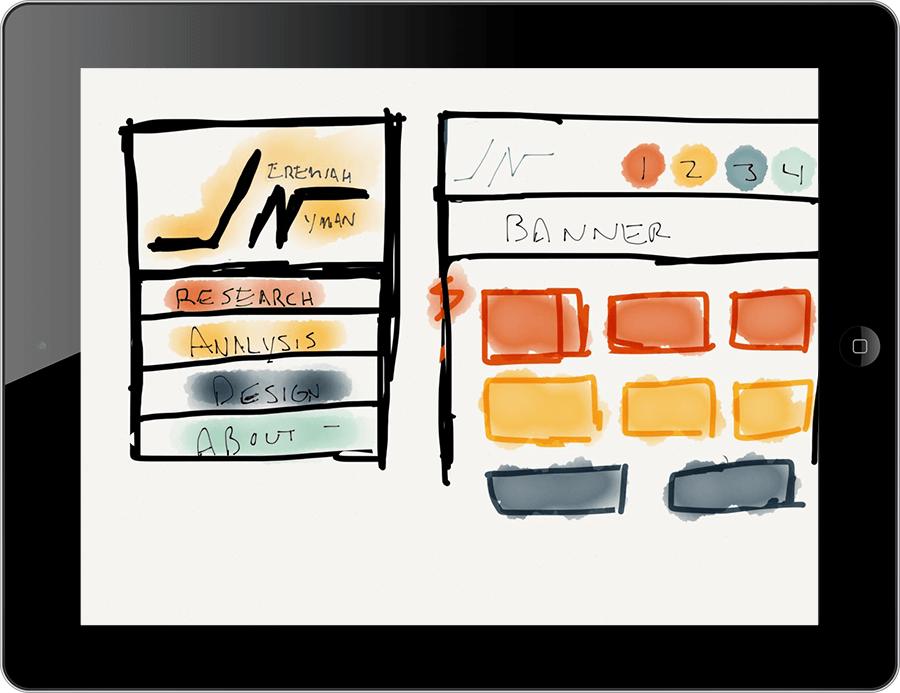 JEREMIAH
NYMAN
RESEARCH
ANALYSIS
DESIGN
ABOUT -
JN
1 2 3 4
BANNER